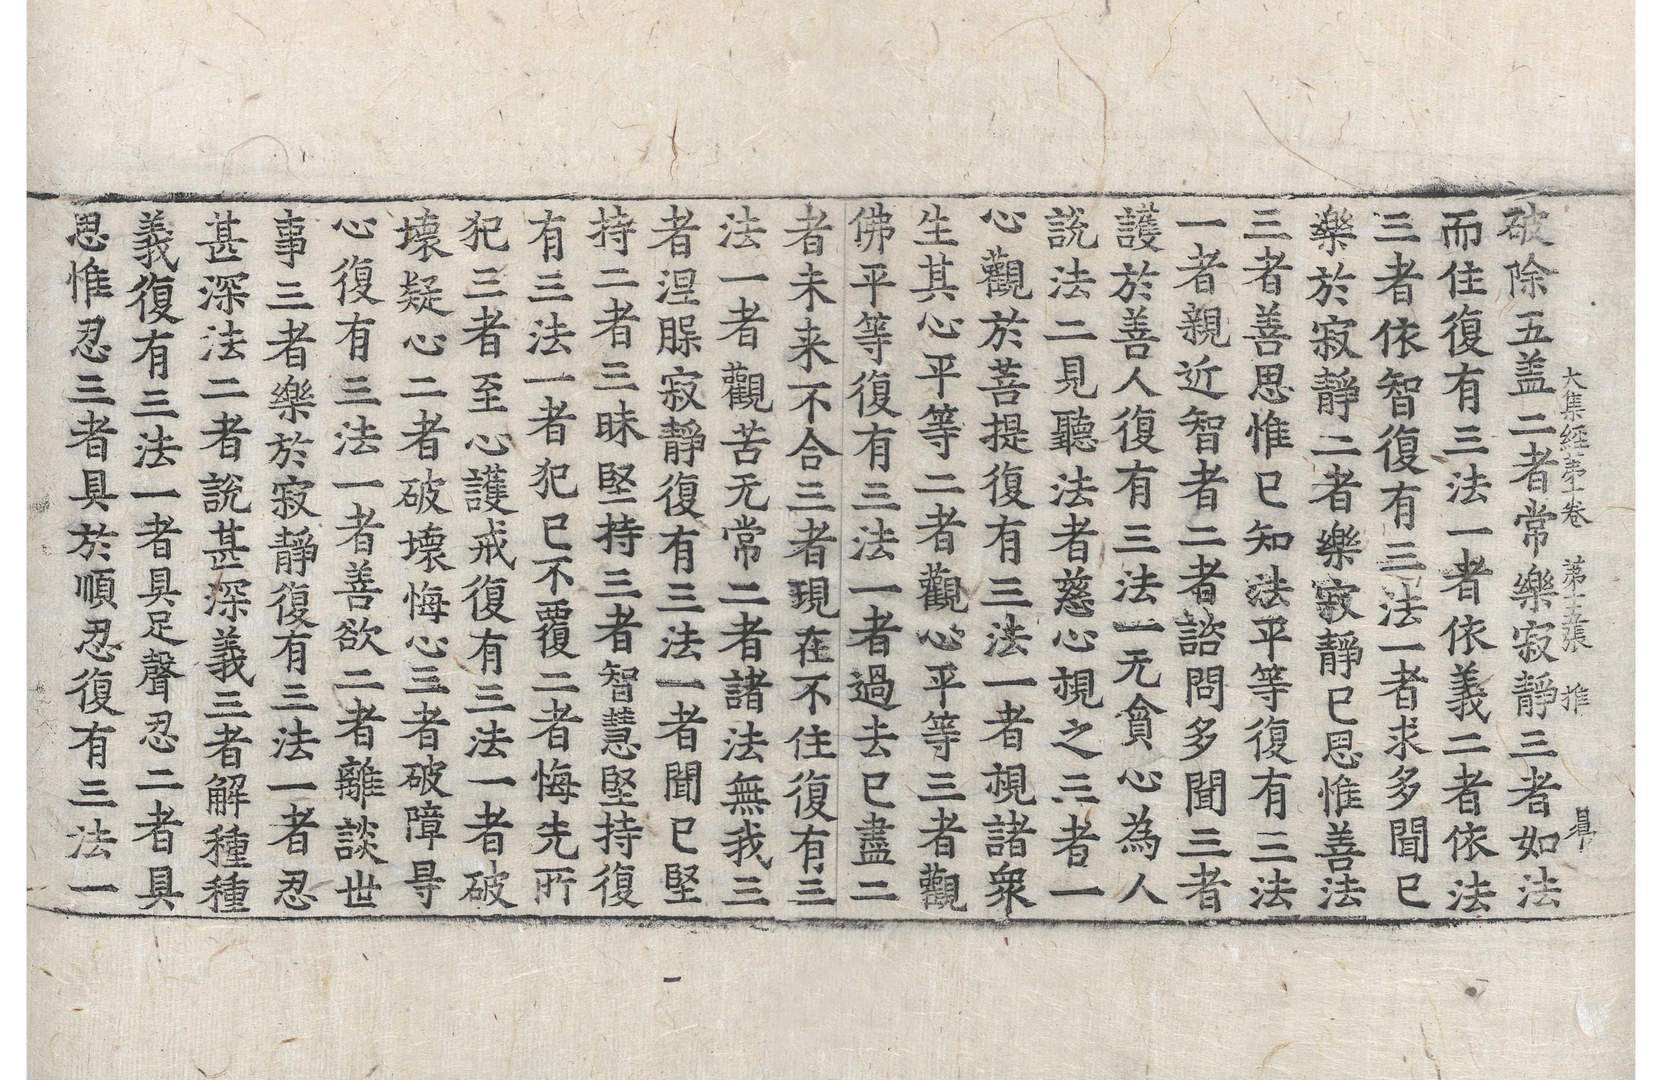 大集經第一卷 第十五張 推
破除五盖二者常樂寂靜三者如法
而住復有三法一者依義二者依法
三者依智復有三法一者求多聞已
樂於寂靜二者樂寂靜已思惟善法
三者善思惟已知法平等復有三法
一者親近智者二者諮問多聞三者
護於善人復有三法一无貪心為人
說法二見聽法者慈心視之三者一
心觀於菩提復有三法一者視諸衆
生其心平等二者觀心平等三者觀
佛平等復有三法一者過去已盡二
者未来不合三者現在不住復有三
法一者觀苦无常二者諸法無我三
者涅槃寂靜復有三法一者聞已堅
持二者三昧堅持三者智慧堅持復
有三法一者犯已不覆二者悔先所
犯三者至心護戒復有三法一者破
壞疑心二者破壞悔心三者破障㝵
心復有三法一者善欲二者離談世
事三者樂於寂靜復有三法一者忍
甚深法二者說甚深義三者解種種
義復有三法一者具足聲忍二者具
思惟忍三者具於順忍復有三法一